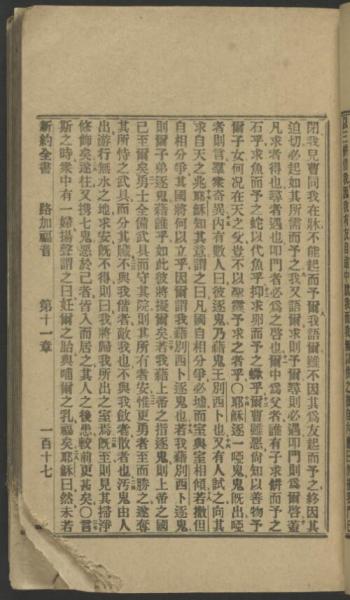 閉我兒曹同我在牀不能起而予爾我語爾雖不因其爲友起而予之終因其
迫切必起如其所需而予之我又語爾求則予爾尋則必遇叩門則爲爾啓蓋
凡求者得也尋者遇也叩門者必爲之啓也爾中爲父者誰有子求餅而予之
石乎求魚而予之蛇以代魚乎抑求卵而予之蠍乎爾曹雖惡尙知以善物予
爾子女何況在天之父豈不以聖靈予求之者乎〇耶穌逐一啞鬼鬼既出啞
者則言羣衆奇異內有數人曰彼逐鬼乃藉鬼王別西卜也又有人試之向其
求自天之兆耶穌知其意謂之曰凡國自相分爭必墟而室與室相傾若撒但
自相分爭其國將何以立乎因爾謂我藉別西卜逐鬼也若我藉別西卜逐鬼
則爾子弟逐鬼藉誰乎如此彼將擬爾矣若我藉上帝之指逐鬼則上帝之國
已至爾矣勇士全備武具而守其院則其所有者安惟更勇者至而勝之遂奪
其所恃之武具而分其贓不與我偕者敵我也不與我斂者散者也汚鬼由人
出游行無水之地求安既不得則曰我將歸我所出之室焉既至則見其掃淨
修飾矣遂往又携七鬼惡於己者皆入而居之其人之後患較前更甚矣〇言
斯之時衆中有一婦揚聲謂之曰妊爾之胎與哺爾之乳福矣耶穌曰然未若
新約全書 路加福音 第十一章 一百十七